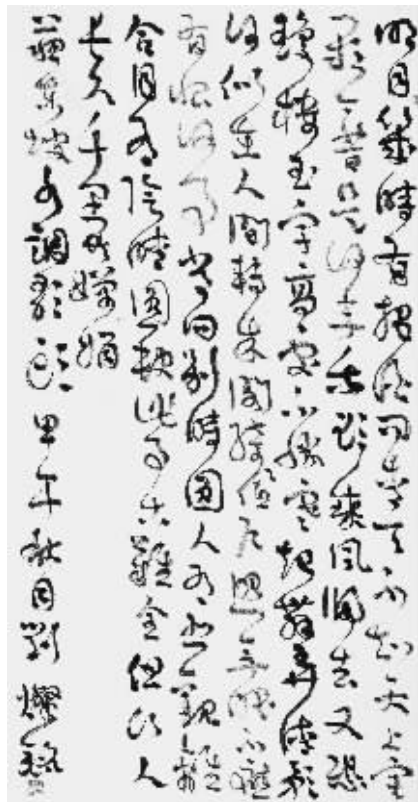 明月幾時有把酒問青天不知天上宮
闕今昔是何年我欲乘風歸去又恐
瓊樓玉宇高處不勝寒起舞弄清影
何似在人間轉朱閣綺低戶照無眠不應
有恨何事長向別時圓人有悲歡離
合月有陰晴圓缺此事古難全但願人
長久千里共嬋娟
蘇東坡水調歌頭 甲午秋月劉燦銘